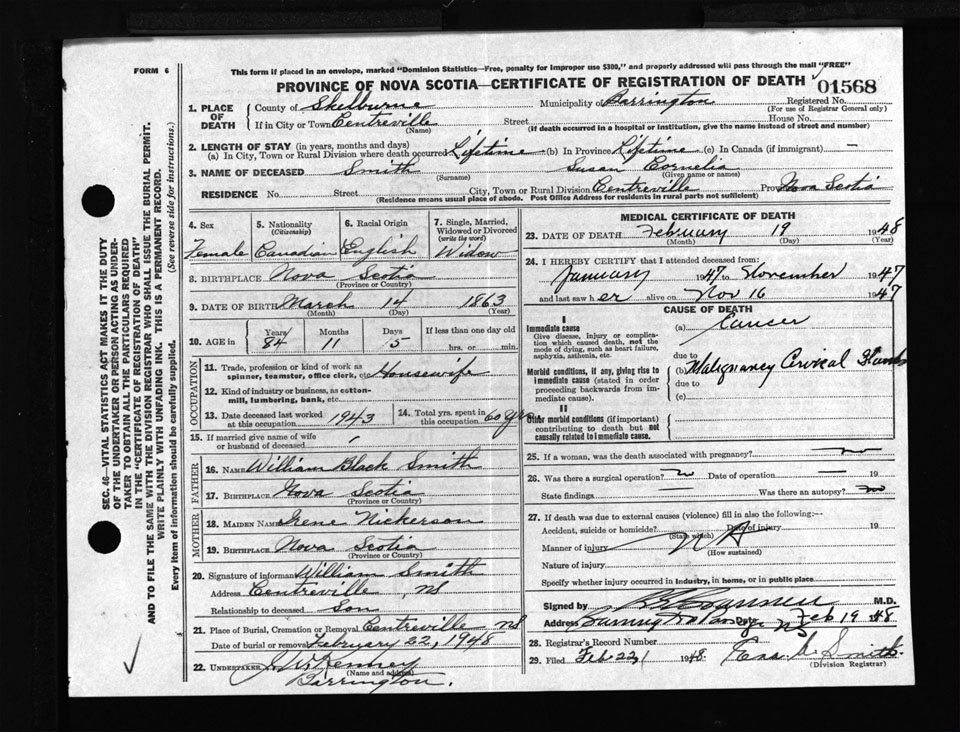 FORM 6
This form if placed in an envelope, marked "Dominion Statistics—Free, penalty for improper use $300," and properly addressed will pass through the mail "FREE"
PROVINCE OF NOVA SCOTIA—CERTIFICATE OF REGISTRATION OF DEATH
01568
1. PLACE OF DEATH
County of Shelburne Municipality of Barrington Registered No.
(For use of Registrar General only)
If in City or Town Centreville Street House No.
(Name) (If death occurred in a hospital or institution, give the name instead of street and number)
2. LENGTH OF STAY (in years, months and days)
(a) In City, Town or Rural Division where death occurred Lifetime (b) In Province Lifetime (c) In Canada (if immigrant) —
3. NAME OF DECEASED Smith Susan Cornelia
(Surname) (Given name or names)
RESIDENCE No. Street City, Town or Rural Division Centreville Province Nova Scotia
(Residence means usual place of abode. Post Office Address for residents in rural parts not sufficient)
4. Sex 5. Nationality (Citizenship) 6. Racial Origin 7. Single, Married, Widowed or Divorced (write the word)
Female Canadian English Widow
8. BIRTHPLACE Nova Scotia
(Province or Country)
9. DATE OF BIRTH March 14 1863
(Month) (Day) (Year)
10. AGE in Years Months Days If less than one day old
84 11 5 hrs. or min.
OCCUPATION
11. Trade, profession or kind of work as spinner, teamster, office clerk, etc. Housewife
12. Kind of industry or business, as cotton-mill, lumbering, bank, etc.
13. Date deceased last worked at this occupation 1943 14. Total yrs. spent in this occupation 60 yrs
15. If married give name of wife or husband of deceased
FATHER
16. NAME William Black Smith
17. BIRTHPLACE Nova Scotia
(Province or Country)
MOTHER
18. MAIDEN NAME Irene Nickerson
19. BIRTHPLACE Nova Scotia
(Province or Country)
20. Signature of informant William Smith
Address Centreville, NS
Relationship to deceased Son
21. Place of Burial, Cremation or Removal Centreville NS
Date of burial or removal February 22, 1948
22. UNDERTAKER
(Name and address)
Barrington.
MEDICAL CERTIFICATE OF DEATH
23. DATE OF DEATH February 19 1948
(Month) (Day) (Year)
24. I HEREBY CERTIFY that I attended deceased from:
January 1947 to November 1947
and last saw her alive on Nov 16 1947
CAUSE OF DEATH
I
Immediate cause
Give disease, injury or complication which caused death, not the mode of dying, such as heart failure, asphyxia, asthenia, etc.
(a) Cancer
due to
Morbid conditions, if any, giving rise to immediate cause (stated in order proceeding backwards from immediate cause).
(b) Malignancy Cervical Glands
due to
(c)
II
Other morbid conditions (if important) contributing to death but not causally related to immediate cause.
25. If a woman, was the death associated with pregnancy? no
26. Was there a surgical operation? no Date of operation — 19
State findings — Was there an autopsy? no
27. If death was due to external causes (violence) fill in also the following:—
Accident, suicide or homicide? Date of injury 19
(State which)
Manner of injury
(How sustained)
Nature of injury
Specify whether injury occurred in industry, in home, or in public place
Signed by M.D.
Address Date Feb 19 1948
28. Registrar's Record Number
29. Filed Feb. 22, 1948. Smith.
(Division Registrar)
SEC. 46—VITAL STATISTICS ACT MAKES IT THE DUTY
OF THE UNDERTAKER OR PERSON ACTING AS UNDERTAKER TO OBTAIN ALL THE PARTICULARS REQUIRED
IN THE "CERTIFICATE OF REGISTRATION OF DEATH"
AND TO FILE THE SAME WITH THE DIVISION REGISTRAR WHO SHALL ISSUE THE BURIAL PERMIT.
WRITE PLAINLY WITH UNFADING INK. THIS IS A PERMANENT RECORD.
Every item of information should be carefully supplied. (See reverse side for instructions.)